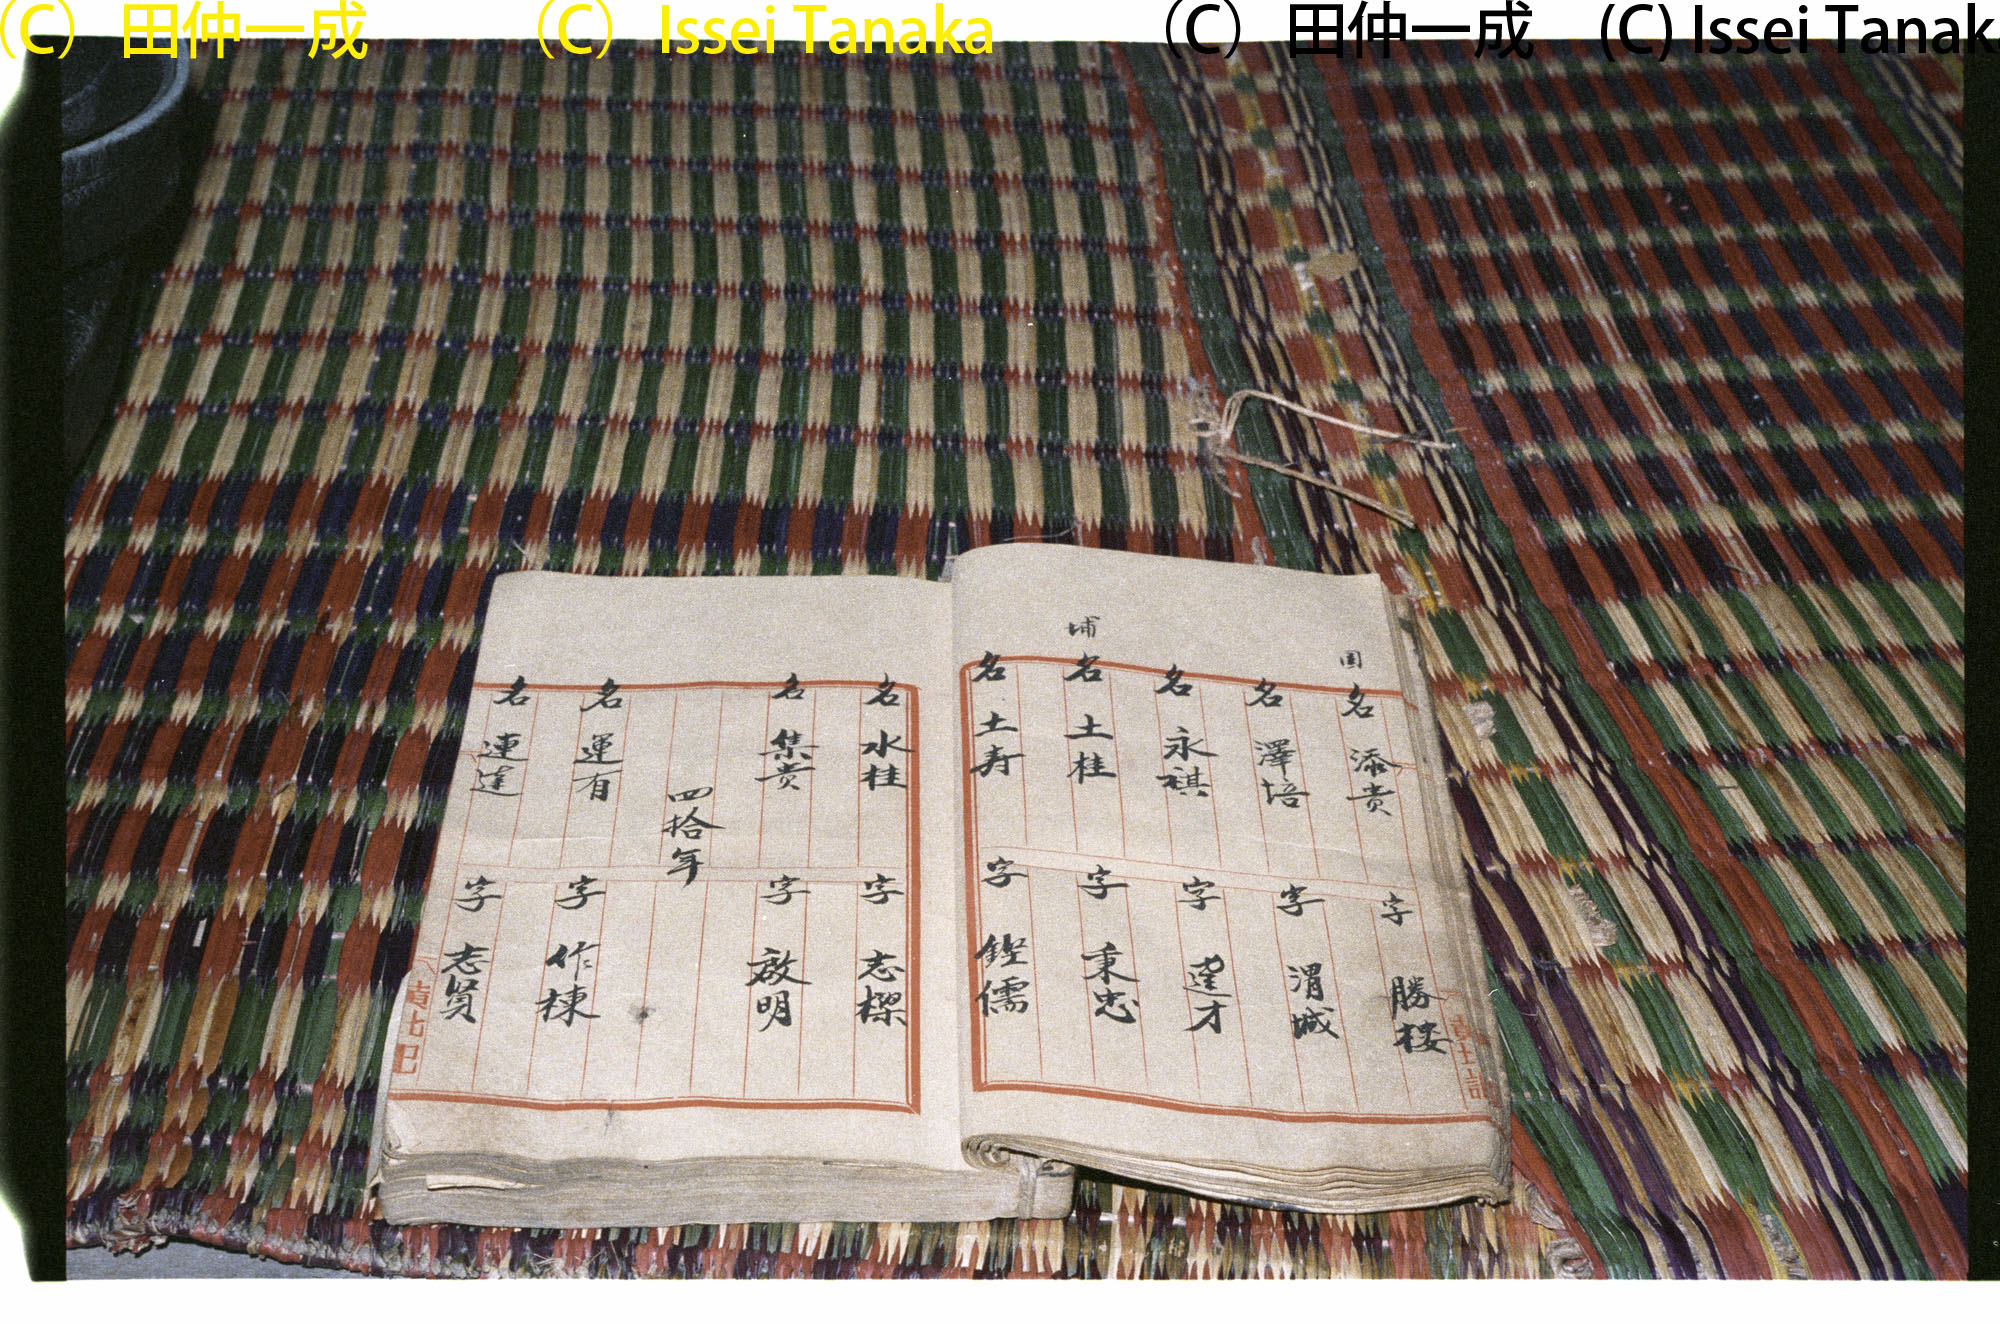 （C） 田仲一成 （C） Issei Tanaka （C） 田仲一成 (C) Issei Tanak
圍
名 添贵 字 勝楼
名 澤培 字 渭城
名 永祺 字 達才
埔
名 土桂 字 秉忠
名 土寿 字 鏗儒
名 水桂 字 志樑
名 集贵 字 啟明
四拾年
名 運有 字 作棟
名 連達 字 志賢